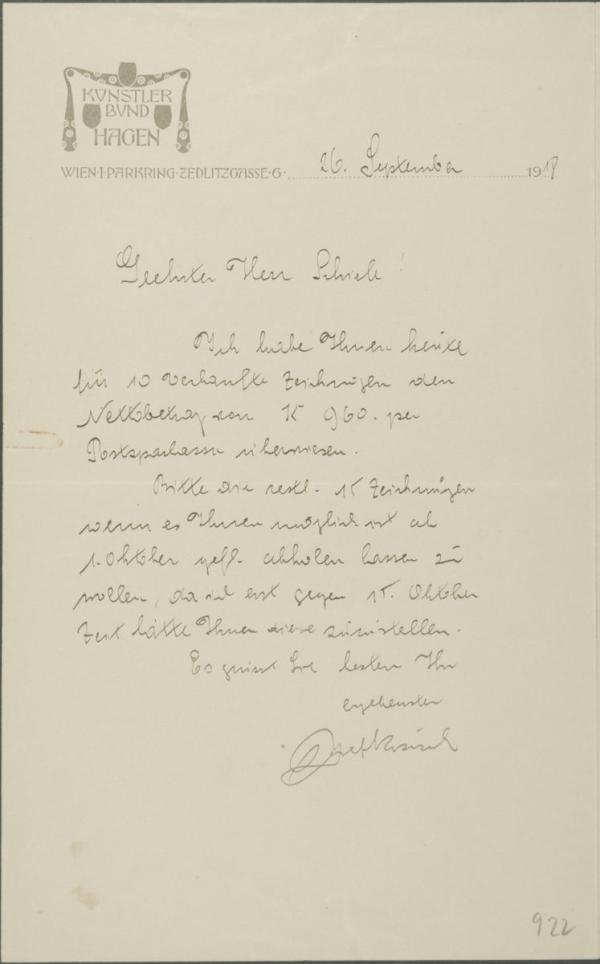 KÜNSTLER
BUND
HAGEN
WIEN·I·PARKRING·ZEDLITZGASSE·6· 26. September 1918
Geehrter Herr Schiele!
Ich habe Ihnen heute
für 10 verkaufte Zeichnungen den
Nettobetrag von K 960. per
Postsparkassa überwiesen.
Bitte die restl. 15 Zeichnungen
wenn es Ihnen möglich ist ab
1. Oktober gefl. abholen lassen zu
wollen, da ich erst gegen 15. Oktober
Zeit hätte Ihnen diese zuzustellen.
Es grüsst Sie bestens Ihr
ergebenster
922